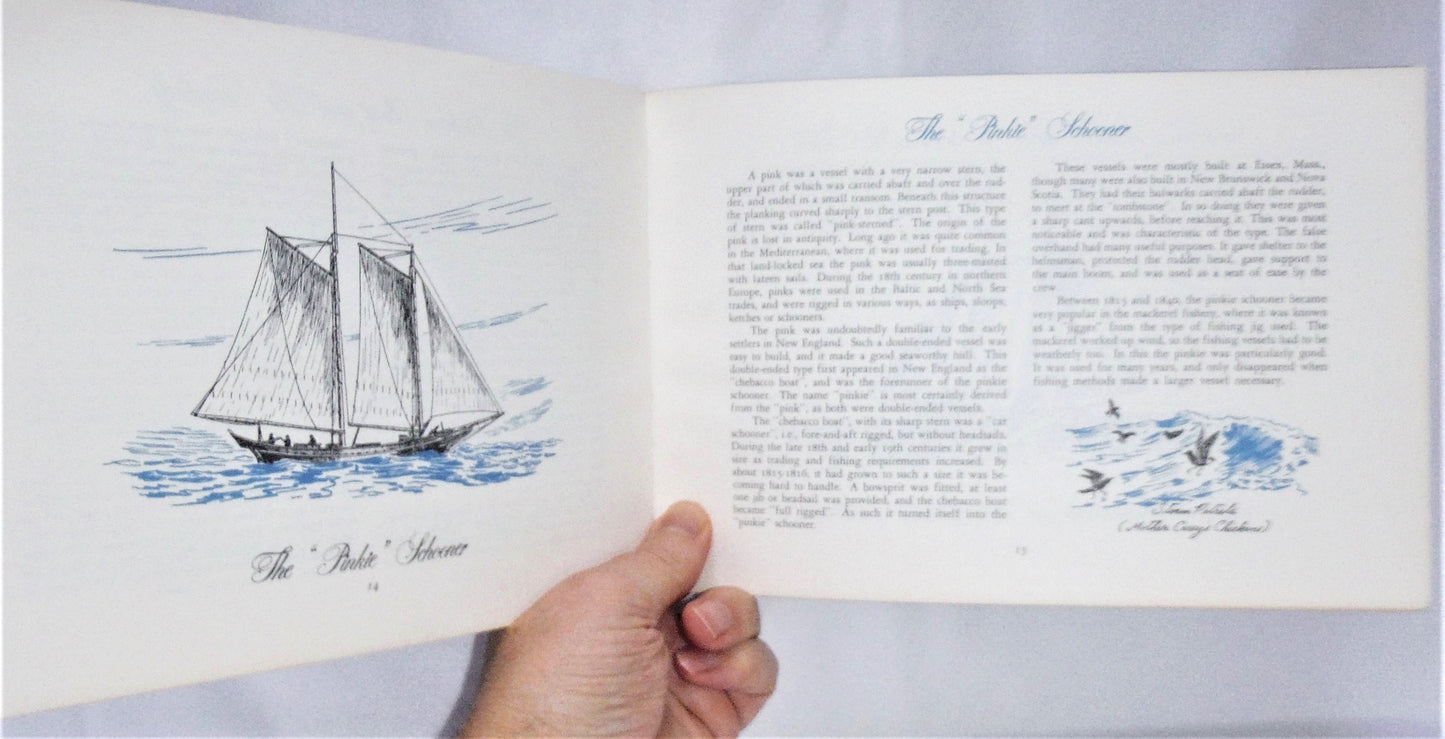 The "Pinkie" Schooner
14
The "Pinkie" Schooner
A pink was a vessel with a very narrow stern, the
upper part of which was carried abaft and over the rud-
der, and ended in a small transom. Beneath this structure
the planking curved sharply to the stern post. This type
of stern was called "pink-sterned". The origin of the
pink is lost in antiquity. Long ago it was quite common
in the Mediterranean, where it was used for trading. In
that land-locked sea the pink was usually three-masted
with lateen sails. During the 18th century in northern
Europe, pinks were used in the Baltic and North Sea
trades, and were rigged in various ways, as ships, sloops,
ketches or schooners.
The pink was undoubtedly familiar to the early
settlers in New England. Such a double-ended vessel was
easy to build, and it made a good seaworthy hull. This
double-ended type first appeared in New England as the
"chebacco boat", and was the forerunner of the pinkie
schooner. The name "pinkie" is most certainly derived
from the "pink", as both were double-ended vessels.
The "chebacco boat", with its sharp stern was a "cat
schooner", i.e., fore-and-aft rigged, but without headsails.
During the late 18th and early 19th centuries it grew in
size as trading and fishing requirements increased. By
about 1815-1816, it had grown to such a size it was be-
coming hard to handle. A bowsprit was fitted, at least
one jib or headsail was provided, and the chebacco boat
became "full rigged". As such it turned itself into the
"pinkie" schooner.
These vessels were mostly built at Essex, Mass.,
though many were also built in New Brunswick and Nova
Scotia. They had their bulwarks carried abaft the rudder,
to meet at the "tombstone". In so doing they were given
a sharp cant upwards, before reaching it. This was most
noticeable and was characteristic of the type. The false
overhand had many useful purposes. It gave shelter to the
helmsman, protected the rudder head, gave support to
the main boom, and was used as a seat of ease by the
crew.
Between 1815 and 1840, the pinkie schooner became
very popular in the mackerel fishery, where it was known
as a "jigger" from the type of fishing jig used. The
mackerel worked up wind, so the fishing vessels had to be
weatherly too. In this the pinkie was particularly good.
It was used for many years, and only disappeared when
fishing methods made a larger vessel necessary.
Storm Petrels
(Mother Careys Chickens)
15